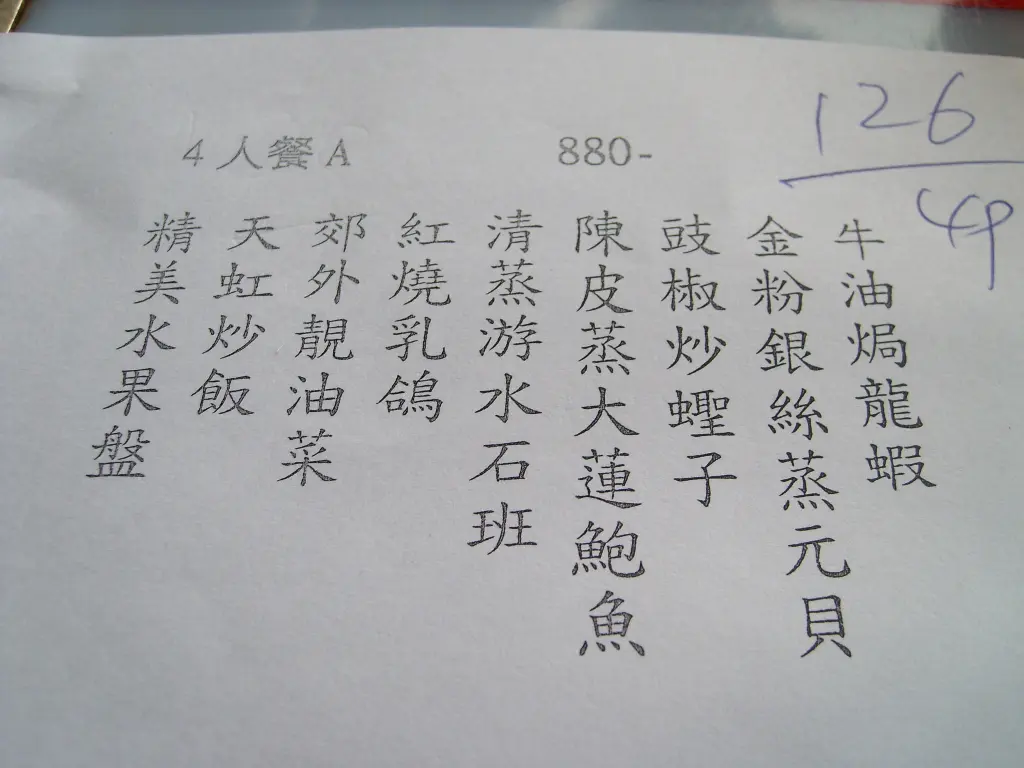 4人餐A 880-
126
49
牛油焗龍蝦
金粉銀絲蒸元貝
豉椒炒蟶子
陳皮蒸大蓮鮑魚
清蒸游水石班
紅燒乳鴿
郊外靚油菜
天虹炒飯
精美水果盤